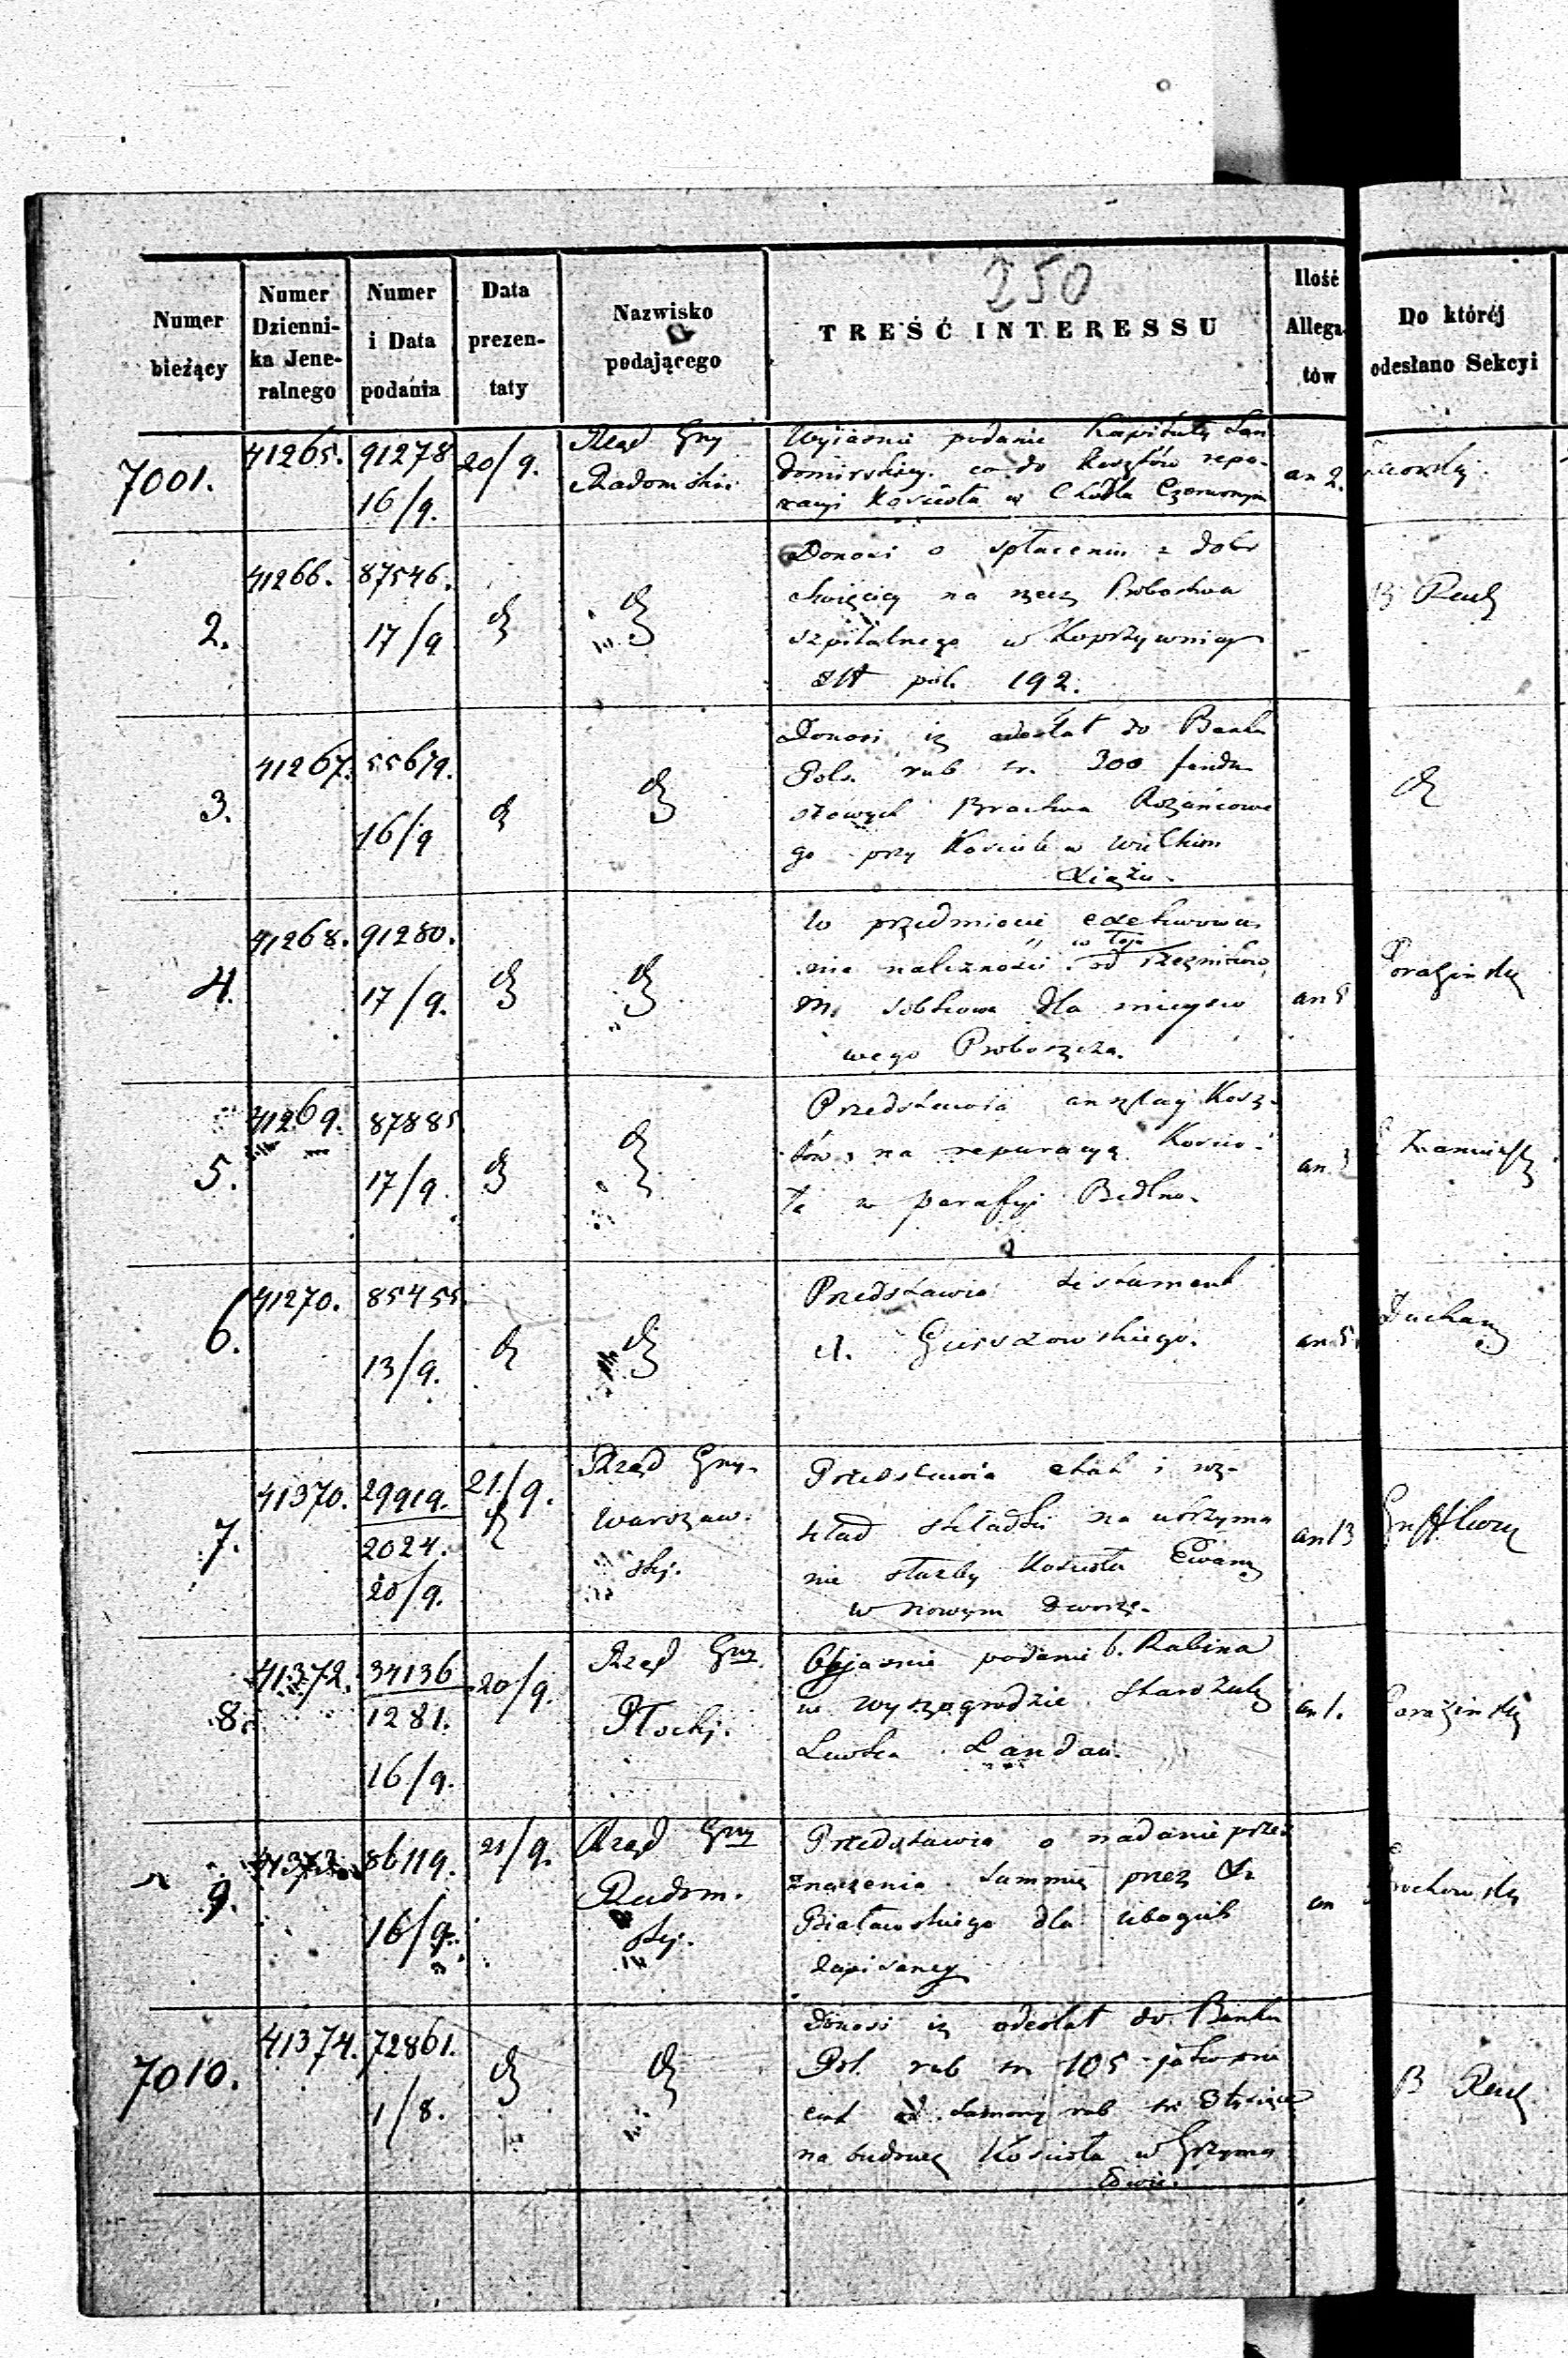 250
Numer bieżący
Numer Dzienni-ka Jene-ralnego
Numer i Data podania
Data prezen-taty
Nazwisko podającego
TREŚĆ INTERESSU
Ilość Allega-tów
Do któréj odesłano Sekcyi
7001. 41265. 91278 16/9. 20/9. Rząd Gny Radomski
Wyjaśnia podanie Kapituły San
domirskiey co do kosztów repa-
racyi Kościoła w Chodla
an 2.
2. 41266. 87546. 17/9
Donosi o spłaceniu z dobr
na rzecz Probostwa
szpitalnego w Koprzywnicy
pol. 192.
B
3. 41267. 55679. 16/9
Donosi iż odesłał do Banku
Pols. rub sr. 300 fundu
szowych Bractwa Rożańcowe
go przy Kościele w Wielkim
Książu.
4. 41268. 91280. 17/9.
W przedmiocie
nia należności od rzeźników
m. Sobkowa dla mieysco
wego Proboszcza.
an 5
5. 41269. 87885 17/9.
Przedstawia anszlag Kosz-
tów na reparacyą Kościo-
ła w parafii Bedlno.
an 3
6. 41270. 85455. 13/9.
Przedstawia testament
an 5.
7. 41370. 29919. 2024. 20/9. 21/9. Rząd Gny. Warszaw. ski.
Przedstawia etat i roz-
kład składki na utrzyma
nie służby Kościoła Ewang
w Nowym Dworze.
an 13
8. 41372. 34136 1281. 16/9. 20/9. Rząd Gny Płocki.
Objaśnia podanie b. Rabina
w Wyszogrodzie Starozak
Lewka Landau.
an 1.
9. 41373. 86119. 16/9. 21/9. Rząd Gny Radom. ski.
Przedstawia o nadanie prze
znaczenia Summie przez
Białawskiego dla ubogich
zapisaney
an
7010. 41374. 72861. 1/8.
Donosi iż odesłał do Banku
Pol. rub sr 105 jako
od Summy rub sr 3 tysiące
na budowę Kościoła w Grzyma
łowie.
B